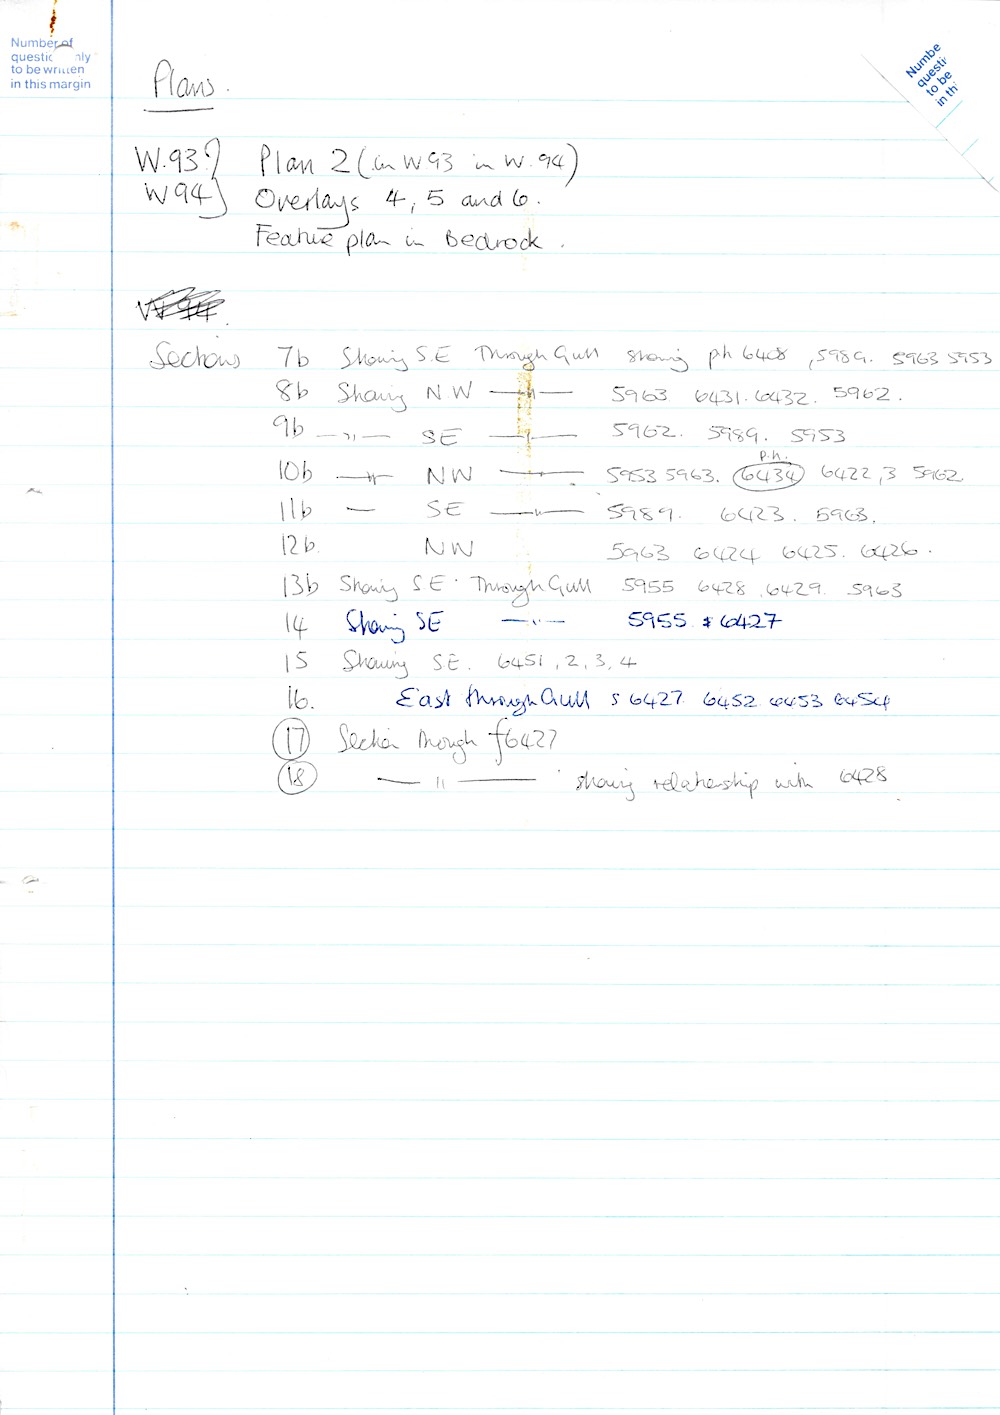 Number of
questio nly
to be written
in this margin
Numbe
questi
to be
in th
Plans.
W.93 } Plan 2 (in W93 in W.94)
W94 } Overlays 4, 5 and 6.
Feature plan in Bedrock.
W94
Sections 7b Showing S.E Through Gull showing ph 6408, 5989. 5963 5953
8b Showing NW —"— 5963 6431. 6432. 5962.
9b —"— SE —"— 5962. 5989. 5953
p.h.
10b —"— NW —"— 5953 5963. 6434 6422,3 5962
11b — SE —"— 5989. 6423. 5963.
12b. NW 5963 6424 6425. 6426.
13b Showing SE. Through Gull 5955 6428. 6429. 5963
14 Showing SE —"— 5955 & 6427
15 Showing SE. 6451, 2, 3, 4
16. East through Gull s 6427 6452 6453 6454
17 Section through f6427
18 —"— showing relationship with 6428